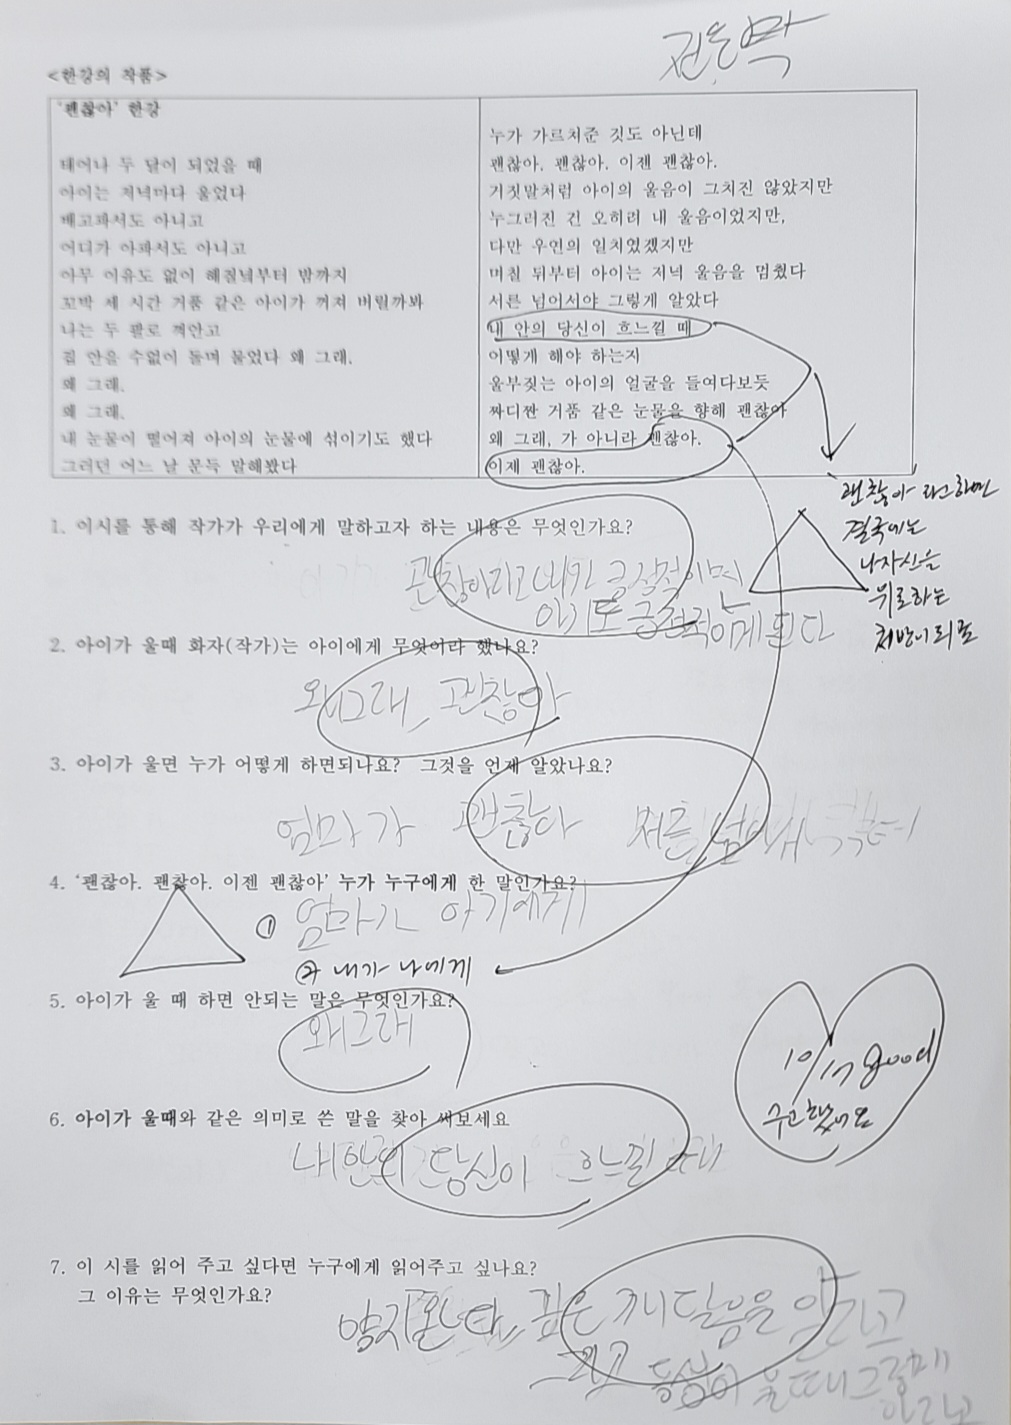 <한강의 작품>
'괜찮아' 한강
태어나 두 달이 되었을 때
아이는 저녁마다 울었다
배고파서도 아니고
어디가 아파서도 아니고
아무 이유도 없이 해질녘부터 밤까지
꼬박 세 시간 거품 같은 아이가 꺼져 버릴까봐
나는 두 팔로 껴안고
집 안을 수없이 돌며 물었다 왜 그래.
왜 그래.
왜 그래.
내 눈물이 떨어져 아이의 눈물에 섞이기도 했다
그러던 어느 날 문득 말해봤다
누가 가르쳐준 것도 아닌데
괜찮아. 괜찮아. 이젠 괜찮아.
거짓말처럼 아이의 울음이 그치진 않았지만
누그러진 건 오히려 내 울음이었지만,
다만 우연의 일치였겠지만
며칠 뒤부터 아이는 저녁 울음을 멈췄다
서른 넘어서야 그렇게 알았다
내 안의 당신이 흐느낄 때
어떻게 해야 하는지
울부짖는 아이의 얼굴을 들여다보듯
짜디짠 거품 같은 눈물을 향해 괜찮아
왜 그래, 가 아니라 괜찮아.
이제 괜찮아.
괜찮아 라고하면
결국에는
나자신을
위로하는
처방이되죠
1. 이시를 통해 작가가 우리에게 말하고자 하는 내용은 무엇인가요?
괜찮아라고 내가 긍정적이면
아기도 긍정적이게 된다
2. 아이가 울때 화자(작가)는 아이에게 무엇이라 했나요?
왜그래, 괜찮아
3. 아이가 울면 누가 어떻게 하면되나요? 그것을 언제 알았나요?
엄마가 괜찮아
4. '괜찮아. 괜찮아. 이젠 괜찮아' 누가 누구에게 한 말인가요?
① 엄마가 아기에게
② 내가 나에게
5. 아이가 울 때 하면 안되는 말은 무엇인가요?
왜그래
10/17 good
수고했어요
6. 아이가 울때와 같은 의미로 쓴 말을 찾아 써보세요
내안의 당신이 흐느낄 때
7. 이 시를 읽어 주고 싶다면 누구에게 읽어주고 싶나요?
그 이유는 무엇인가요?
깊은 깨달음을 얻으라고
그리고 동생이 울때 그렇게
하라고